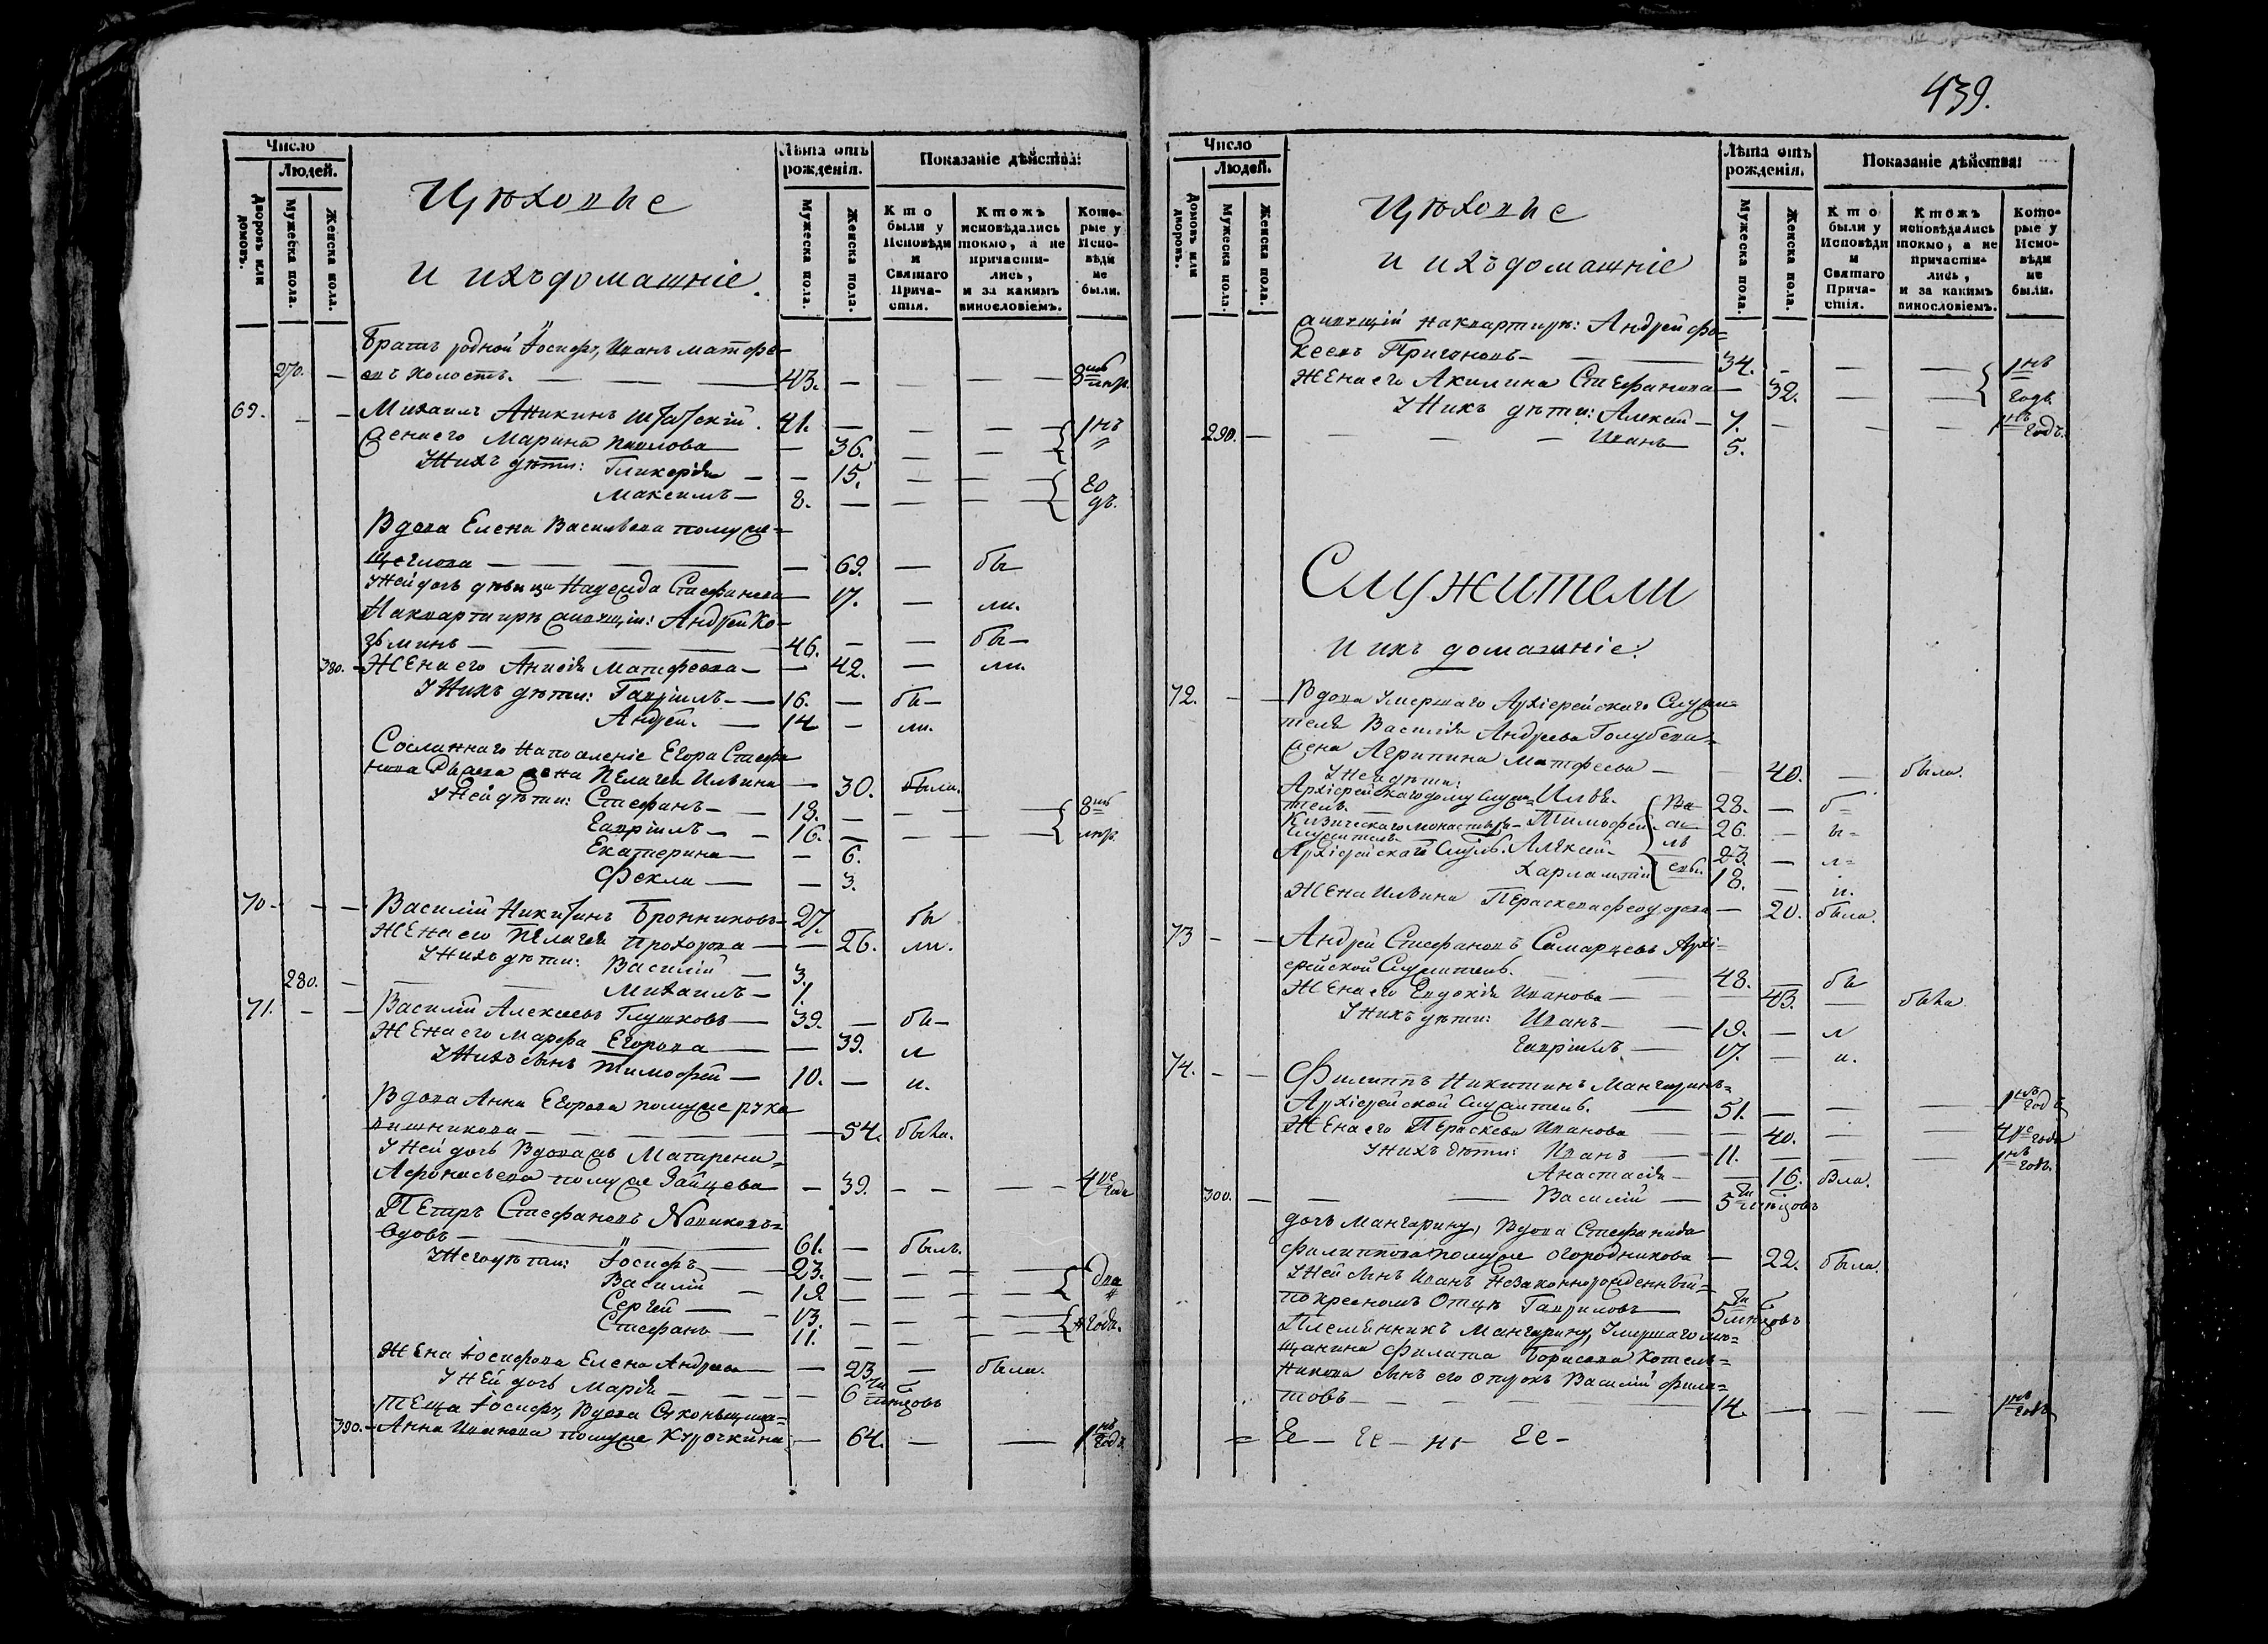 439.
Число
Людей.
Дворовъ или домовъ.
Мужеска пола.
Женска пола.
Цѣховые
и ихъ домашніе.
Лѣта отъ рожденія.
Мужеска пола.
Женска пола.
Показаніе дѣйства:
Кто были у Исповѣди и Святаго Причастія.
Ктожъ исповѣдались токмо, а не причастились, и за какимъ винословіемъ.
Которые у Исповѣди не были.
Братъ родной Іосифу, Иванъ Матфе-
270. — евъ холостъ. — 43. —
69. Михаилъ Аникинъ 41. — 1нъ
Жена его Марина Павлова — 36.
У нихъ дѣти: Гликерія — 15. го
Максимъ — 8. — дъ.
Вдова Елена Васильева помуже
Щеглова — 69. — бы
У ней дочь дѣвица Надежда Стефанова 17. — ли.
На квартирѣ живущіи: Андрей Ко-
зьминъ — 46. — бы-
380. Жена его Анисія Матфеева — 42. — ли.
У нихъ дѣти: Гавріилъ — 16. — бы-
Андрей. — 14 — ли.
Сосланнаго на поселеніе Егора Стефа
нова жена Пелагея Ильина — 30. была.
У ней дѣти: Стефанъ — 18.
Гавріилъ — 16.
Екатерина — 6.
Фекла — 3.
70. Василій Никитинъ Бронниковъ 27. бы
Жена его Пелагея Прохорова — 26. ли.
У нихъ дѣти: Василій — 3.
280. Михаилъ — 1.
71. Василій Алексѣевъ Глушковъ — 39. — бы-
Жена его Марфа Егорова — 39. л
У нихъ сынъ Тимофей — 10. — и.
Вдова Анна Егорова помуже Рука
вишникова — 54. была.
У ней дочь Вдова жъ Матрена
Афонасьева помуже Зайцева — 39. — 4ре года
Петръ Стефановъ Новиковъ
вдовъ — 61. — былъ.
У него дѣти: Іосифъ — 23.
Василій — 18 два
Сергей — 13.
Стефанъ — 11. года.
Жена Іосифова Елена Андреева — 23 — была.
У ней дочь Марія — 6
Теща Іосифу, Вдова
390. Анна Иванова помуже Курочкина — 64. — 1нъ годъ
Число
Людей.
Домовъ или дворовъ.
Мужеска пола.
Женска пола.
Цѣховые
и ихъ домашніе
Лѣта отъ рожденія.
Мужеска пола.
Женска пола.
Показаніе дѣйства:
Кто были у Исповѣди и Святаго Причастія.
Ктожъ исповѣдались токмо, а не причастились, и за какимъ винословіемъ.
Которые у Исповѣди не были.
живущій на квартирѣ: Андрей Фо-
кеевъ — 34. — 1нъ
Жена его Акилина Стефанова — 32. — годъ.
У нихъ дѣти: Алексей — 7. — 1нъ годъ.
290. — Иванъ 5.
Служители
и ихъ домашніе.
72. Вдова Умершаго Архіерейскаго Служи-
теля Василія Андреева Голубева
жена Агрипина Матфеева — 40. — была.
У ней дѣти:
Архіерейскаго дому Служи- Илья. 28. — б
тель.
Кизическаго монастыря Тимофей 26. — ы
Служитель
Архіерейскаго Алексей 23. — л
Харлампій 18. — и.
Жена Ильина Параскева Феодорова — 20. была.
73 Андрей Стефановъ Самарцевъ Архі-
ерейской Служитель. 48. бы
Жена его Евдокія Иванова — 43. — была
У нихъ дѣти: Иванъ — 19. — л
Гавріилъ — 17. — и.
74. Филиппъ Никитинъ Мангаринъ
Архіерейской Служитель. — 51. — 1нъ годъ
Жена его Параскева Иванова — 40. — 4ре года
У нихъ дѣти: Иванъ — 11. — 1нъ годъ.
Анастасія — 16. была.
300. Василій — 5ти мѣсяцовъ
дочь Мангарину, Вдова Стефанида
Филиппова помуже Огородникова — 22. была.
У ней сынъ Иванъ Незаконнорожденный
по кресномъ Отцѣ Гавриловъ — 5ти мѣсяцовъ
Племянникъ Мангарину, Умершаго мѣ-
щанина Филата Борисова Котель-
никова сынъ его отрокъ Василій Фила-
товъ — 14. — 1нъ годъ